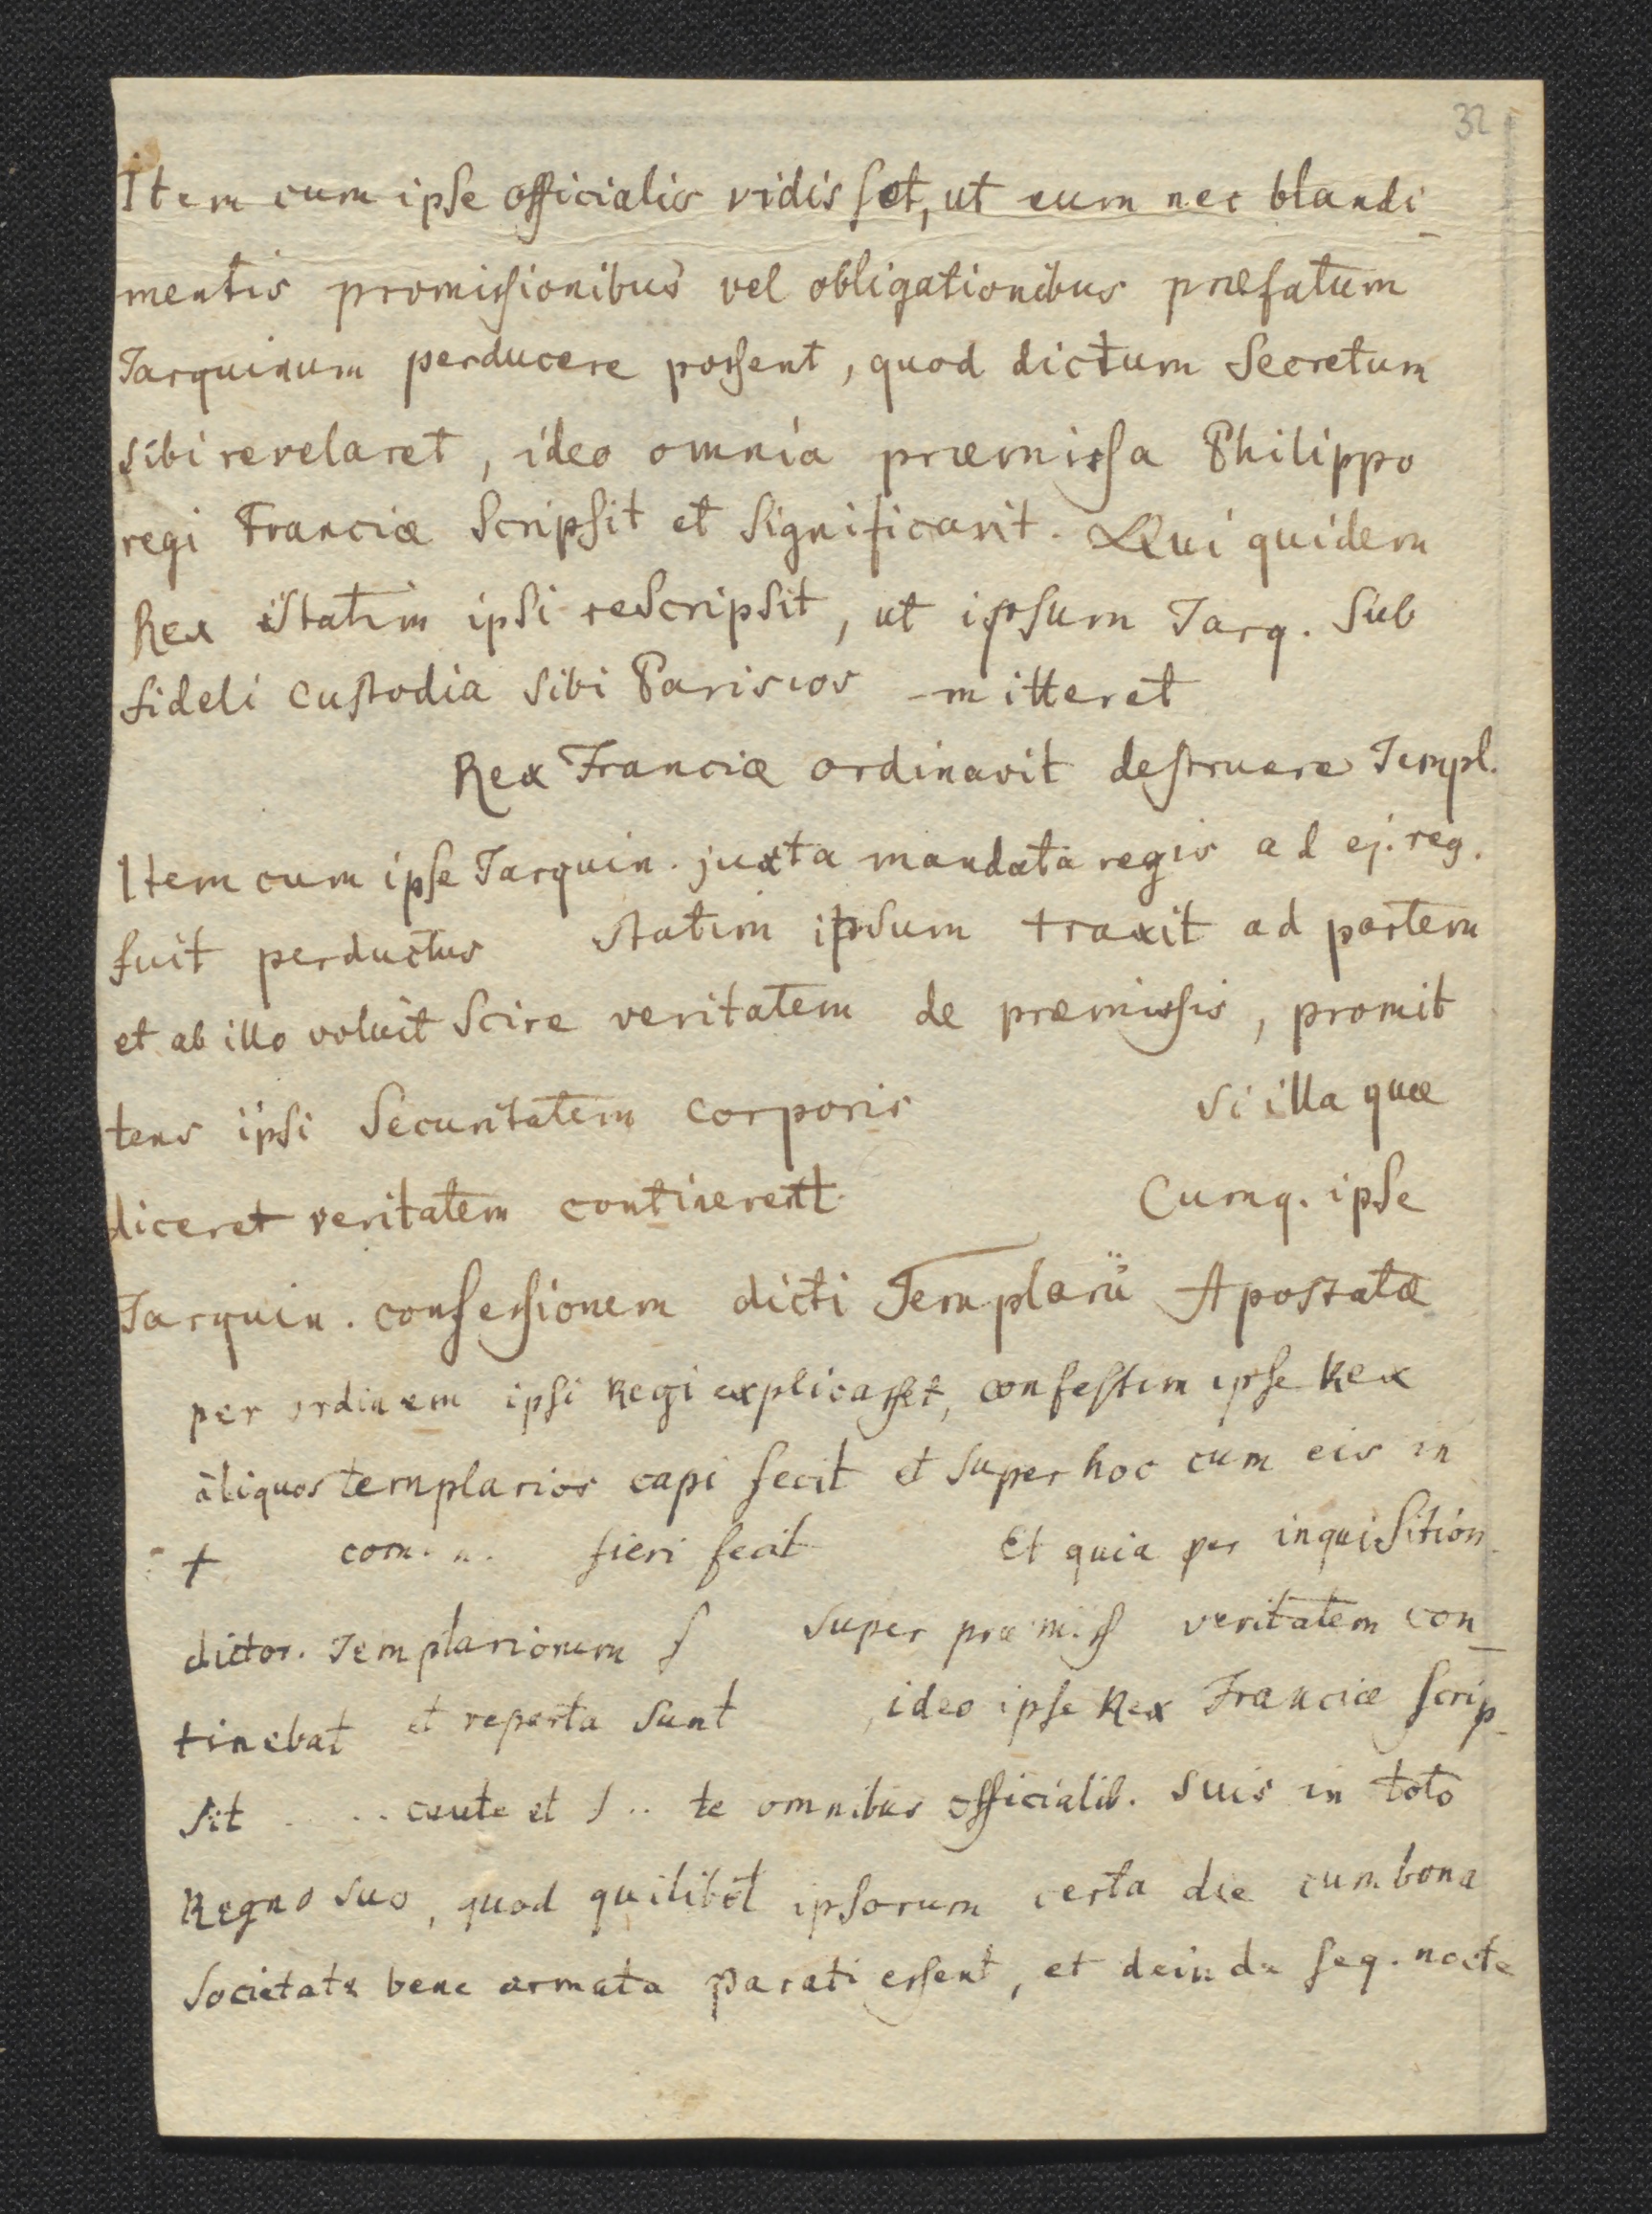 32
Item cum ipse officialis vidisset, ut eum nec blandi-
mentis promissionibus vel obligationibus præfatum
Tarquinum perducere possent, quod dictum Secretum
sibi revelaret, ideo omnia præmissa Philippo
regi Franciæ Scripsit et Significavit. Qui quidem
Rex statim ipsi reScripsit, ut ipsum Tarq. Sub
fideli custodia sibi Parisios mitteret
Rex Franciæ ordinavit destruere Templ.
Item cum ipse Tarquin. juxta mandata regis ad ej. reg.
fuit perductus statim ipsum traxit ad partem
et ab illo voluit Scire veritatem de præmissis, promit
tens ipsi Securitatem corporis si illa quæ
diceret veritatem continerent. Cumq. ipse
Tarquin. confessionem dicti Templarii Apostatæ
per ordinem ipsi Regi explicasset, confestim ipse Rex
aliquos templarios capi fecit et super hoc cum eis in
+ com. n. fieri fecit Et quia per inquisition.
dictor. Templariorum s super præmiss veritatem con-
tinebat et reperta sunt, ideo ipse Rex Franciæ scrip-
sit .. .. caute et s .. te omnibus officialib. suis in toto
Regno suo, quod quilibet ipsorum certa die cum bona
societate bene armata parati essent, et deinde seq. nocte